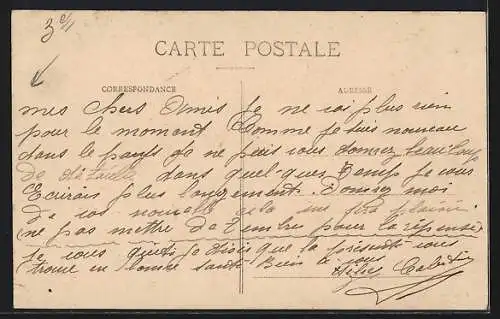 CARTE POSTALE
CORRESPONDANCE
ADRESSE
mes chers Amis Je ne voi plus rien
pour le moment Comme je suis nouveau
dans le pays Je ne puis vous donnez beaucoup
De détaille dans quel-ques Temps Je vous
Ecirais plus longement. Donnez moi
De vos nouvelle cela me fera plaisir
(ne pas mettre De timbre pour la reponse)
Je vous quite Je désire que la présente vous
trouve en bonne santé Bien à vous